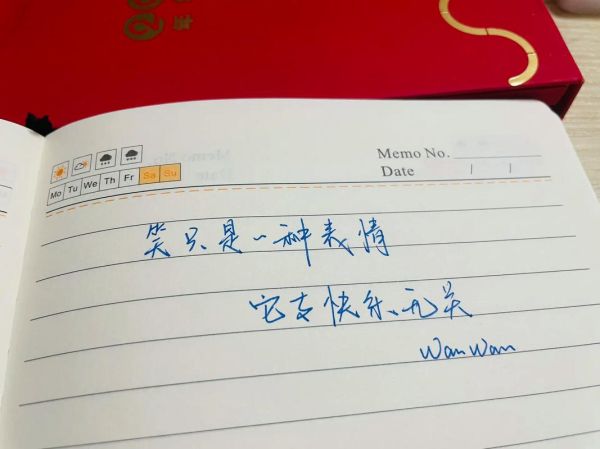 Memo No.
Date / /
Mo Tu We Th Fr Sa Su
笑只是一种表情
它与快乐无关
WanWan